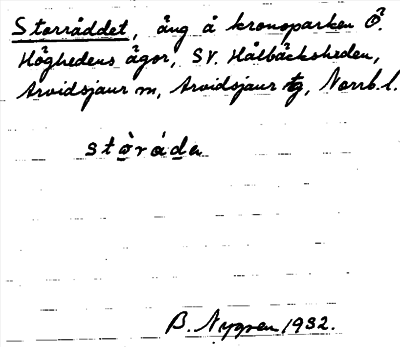 Storråddet, äng å kronoparken Ö.
Höghedens ägor, SV. Hålbäcksheden,
Arvidsjaur sn, Arvidsjaur tg, Norrb. l.
stòråda
B. Nygren 1932.